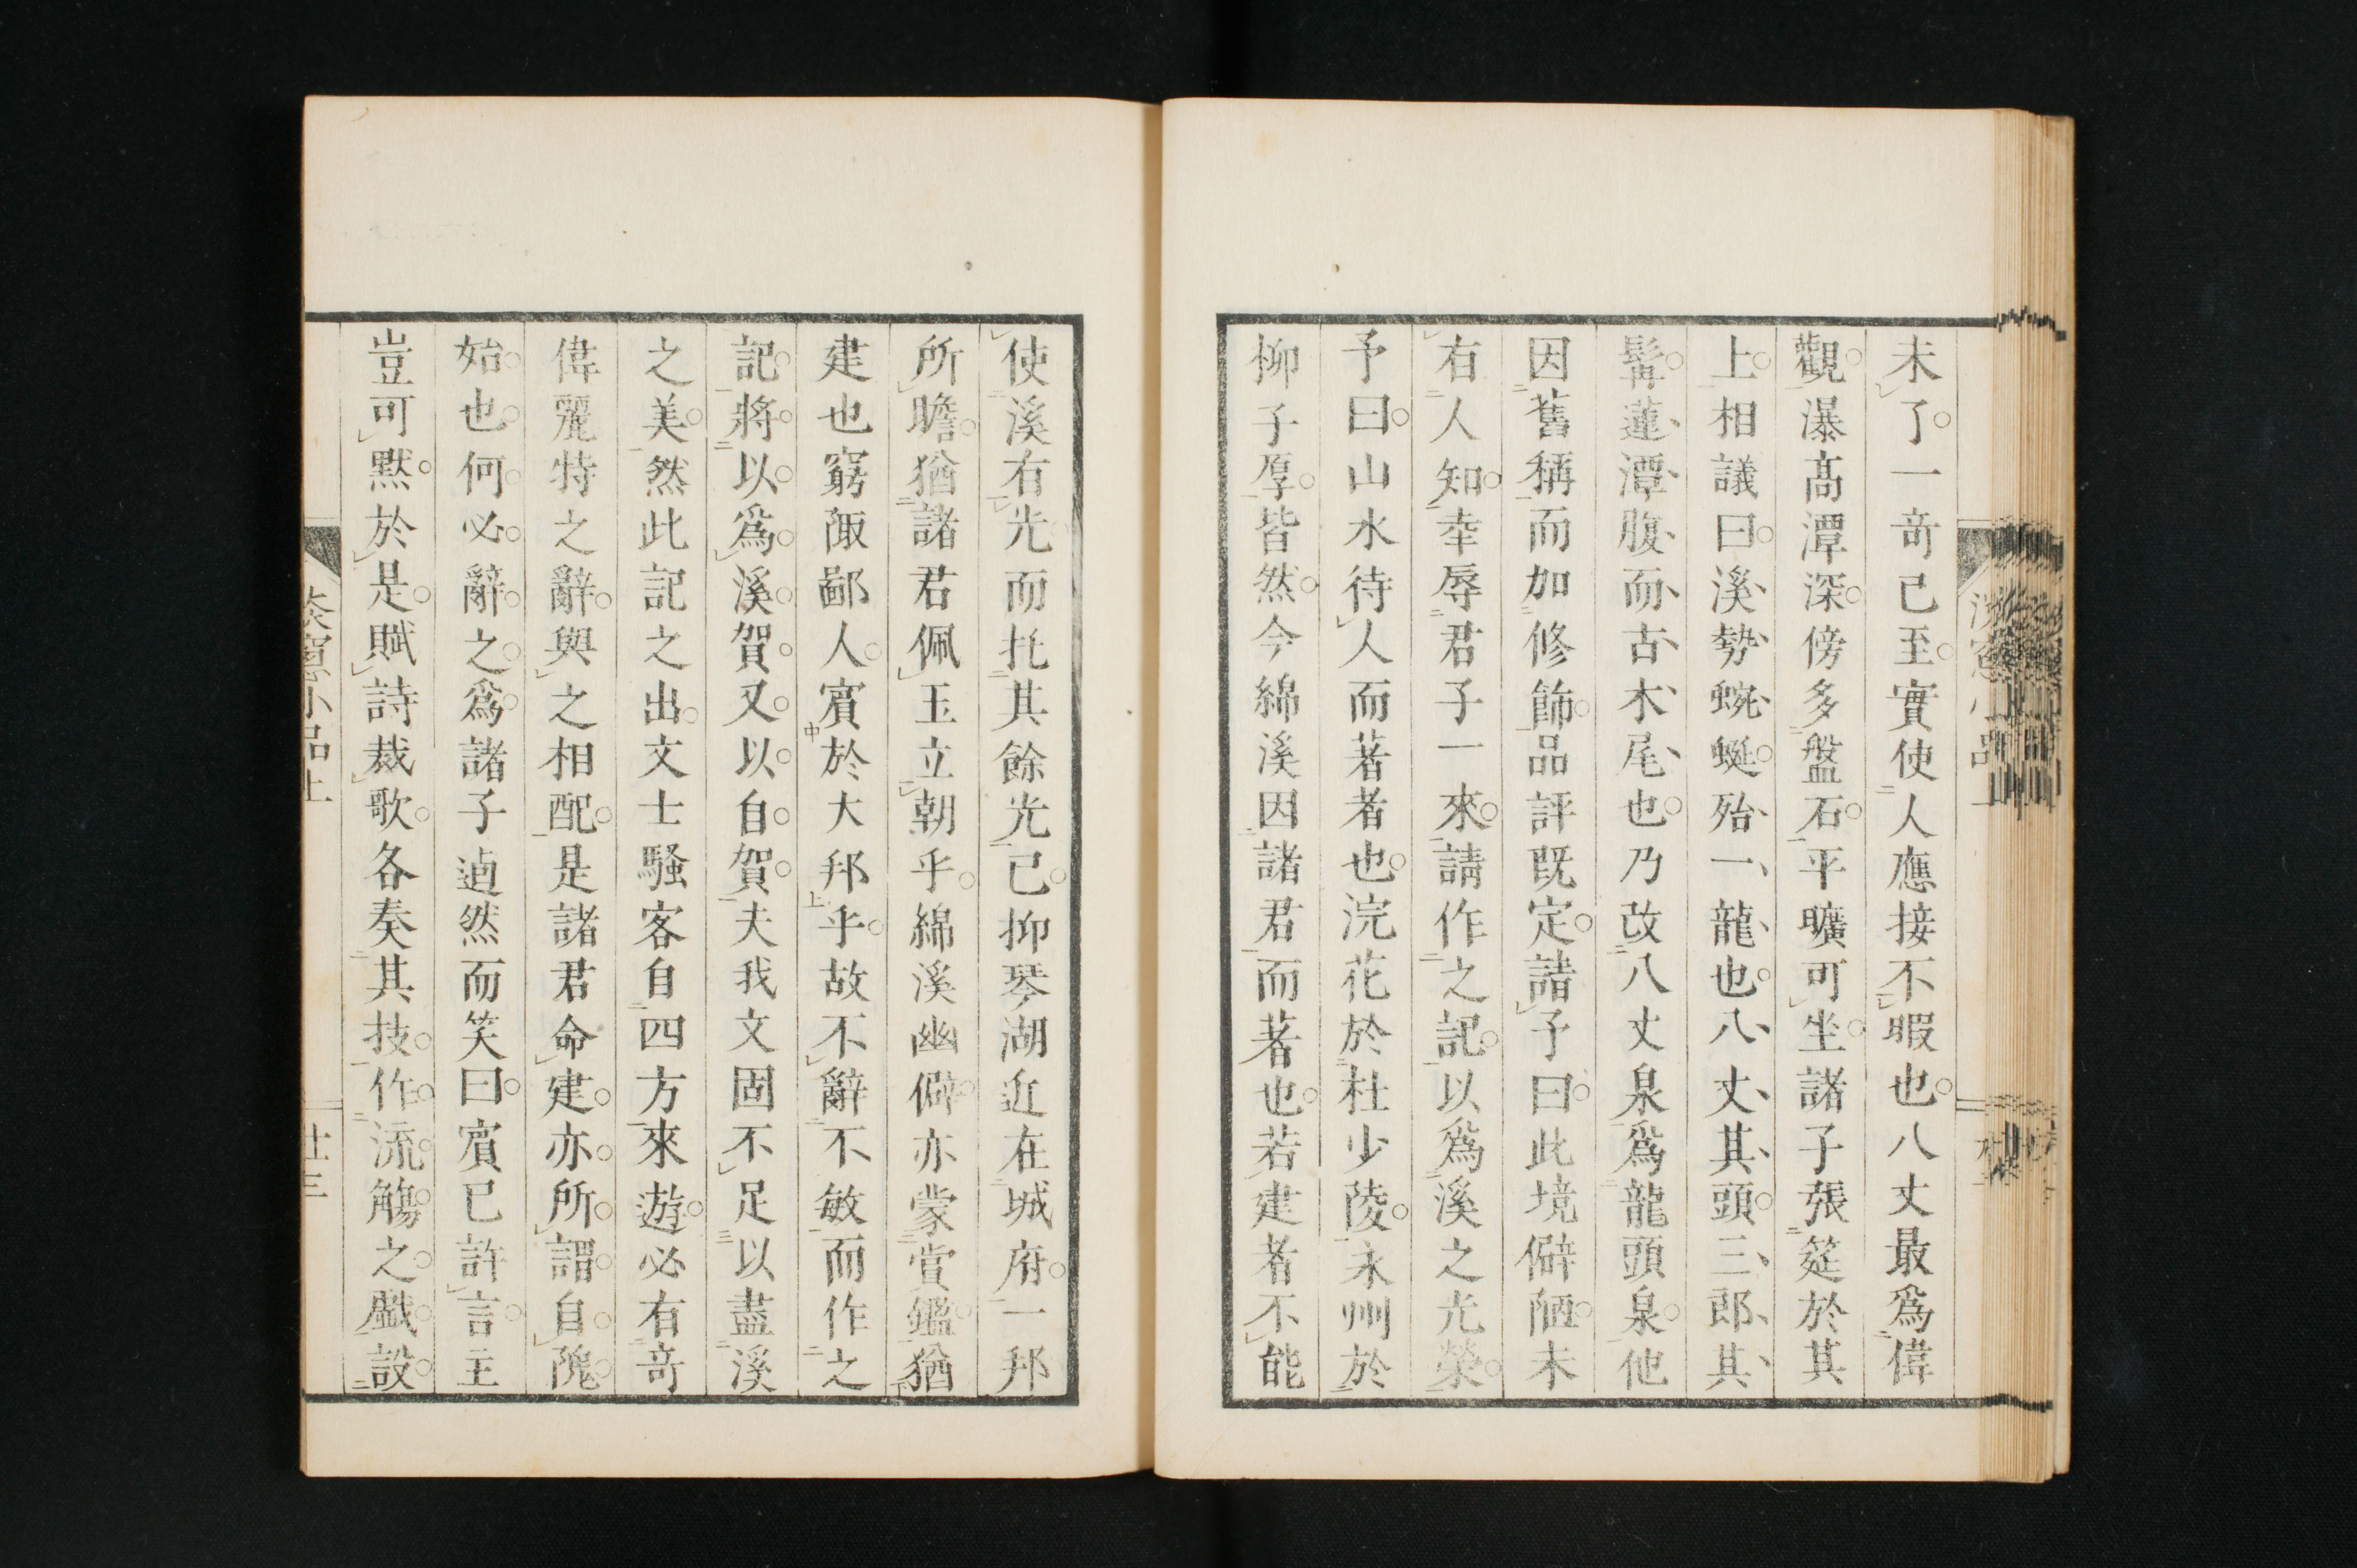 未了一奇已至實使人應接不暇也八丈最爲偉
觀瀑高潭深傍多盤石平曠可坐諸子張筵於其
上相議曰溪勢蜿蜒殆一龍也八丈其頭三郎其
髯蓮潭腹而古木尾也乃改八丈泉爲龍頭泉他
因舊稱而加修飾品評既定諸予曰此境僻陋未
有人知幸辱君子一來請作之記以爲溪之光榮
予曰山水待人而著者也浣花於杜少陵永州於
柳子厚皆然今綿溪因諸君而著也若建者不能
使溪有光而托其餘光已抑琴湖近在城府一邦
所瞻猶諸君佩玉立朝乎綿溪幽僻亦蒙賞鑑猶
建也窮陬鄙人賓於大邦乎故不辭不敏而作之
記將以爲溪賀又以自賀夫我文固不足以盡溪
之美然此記之出文士騷客自四方來遊必有奇
偉麗特之辭與之相配是諸君命建亦所謂自隗
始也何必辭之爲諸子逌然而笑曰賓已許言主
豈可默於是賦詩裁歌各奏其技作流觴之戲設
窻小品上
廿三